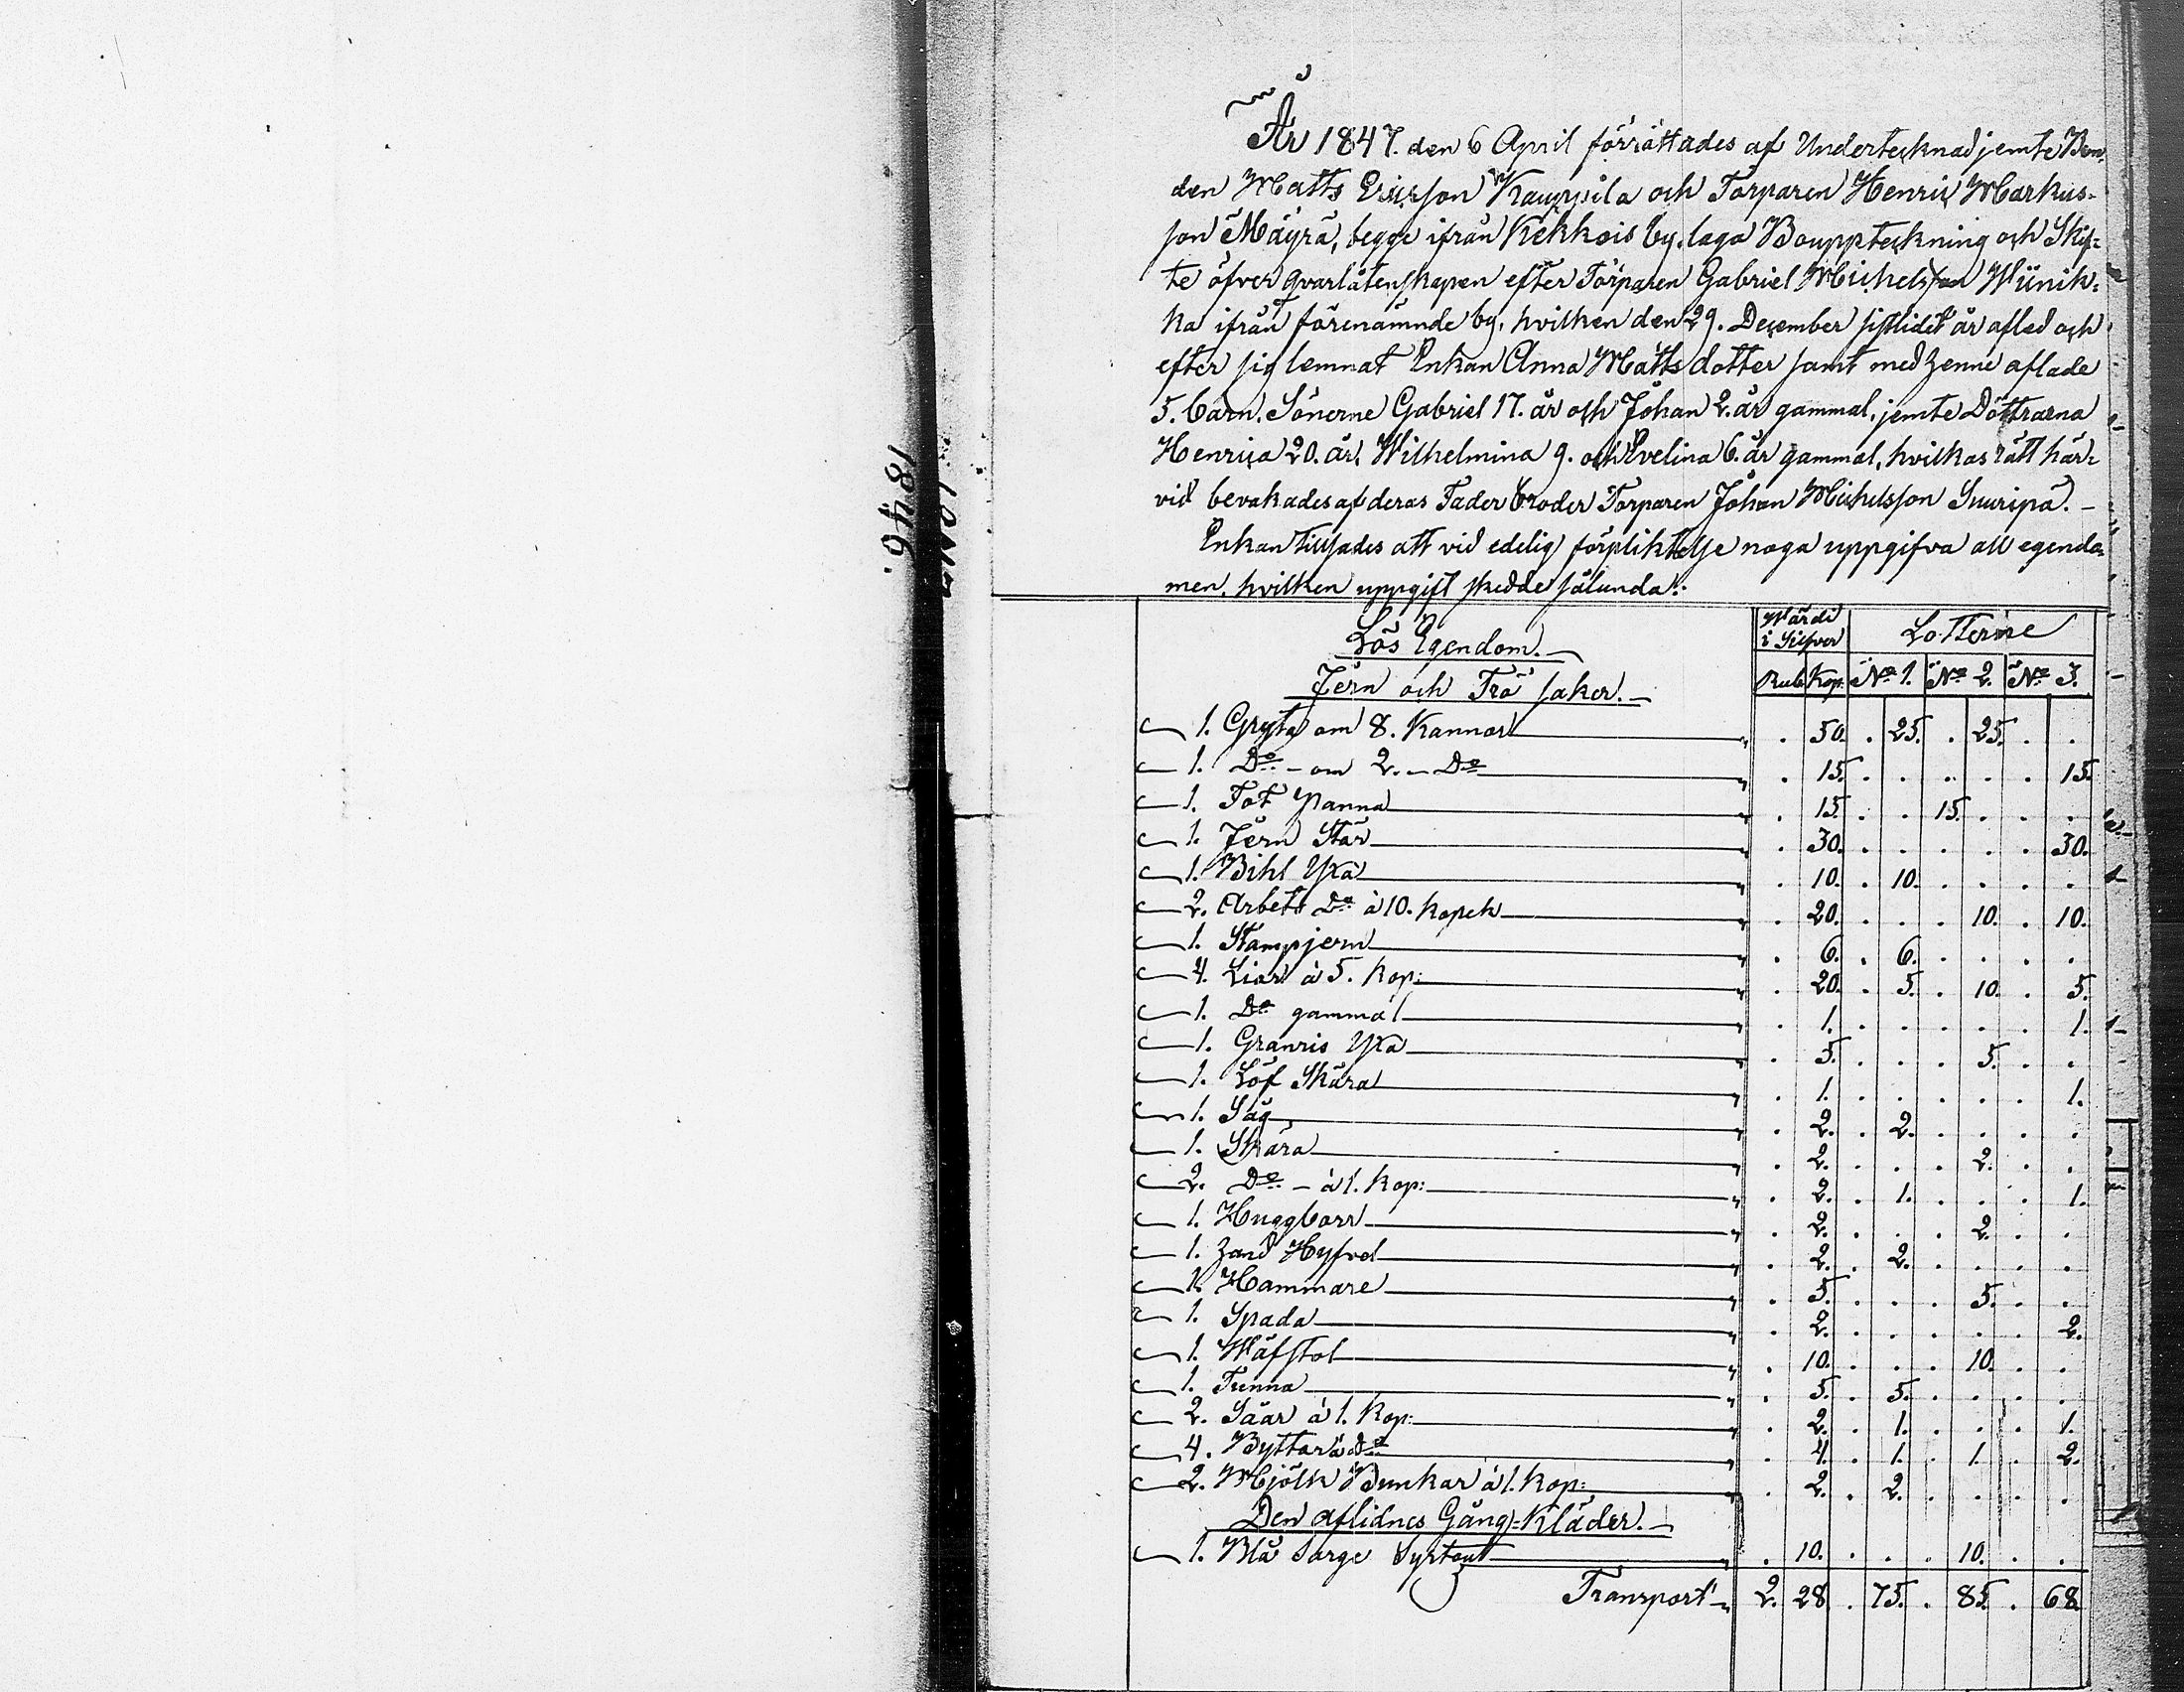 År 1847. den 6 April förrättades af Undertecknad jemte Bon,
den Matts Ericsson Kauppila och Torparen Henric Markus-
son Mäyrä, begge ifrån Kekkois by, laga Bouppteckning och Skif-
te öfver qvarlåtenskapen efter Torparen Gabriel Michelsson Wiinik-
ka ifrån förenämnde by, hvilken den 29. December sistlidit år afled och
efter sig lemnat Enkan Anna Matts dotter samt med henne aflade
5. barn, Sönerne Gabriel 17. år och Johan 2. år gammal, jemte Döttrarna
Henrica 20. år, Wilhelmina 9. och Evelina 6. år gammal, hvilkas rätt här-
vid bevakades af deras Fader broder Torparen Johan Michelsson Suuripä. -
Enkan tillsades att vid edelig förpliktelse noga uppgifva all egendo-
men, hvilken uppgift skedde sålunda:
1846.
Lös Egendom. - Wärde i Silfver Lotterne
Jern och Trä saker. - Rub Kop: No 1. No 2. No 3.
1. Gryta om 8. Kannor " . 50. . 25. . 25. . .
1. Do - om 2. - Do " . 15. . . . . . 15.
1. Fot Panna " . 15. . . 15. . . .
1. Jern Stör " . 30. . . . . . 30.
1. Bihl Yxa " . 10. . 10. . . . .
2. Arbets Do à 10. kopek " . 20. . . . 10. . 10.
1. Stampjern " . 6. . 6. . . . .
4. Liar à 5. Kop: " . 20. . 5. . 10. . 5.
1. Do gammal " . 1. . . . . . 1.
1. Granris Yxa " . 5. . . . 5. . .
1. Löf Skära " . 1. . . . . . 1.
1. Såg " . 2. . 2. . . . .
1. Skära " . 2. . . . 2. . .
2. Do - à 1. Kop: " . 2. . 1. . . . 1.
1. Huggbarr " . 2. . . . 2. . .
1. Hand Hyfvel " . 2. . 2. . . . .
1. Hammare " . 5. . . . 5. . .
1. Spada " . 2. . . . . . 2.
1. Wäfstol " . 10. . . . 10. . .
1. Tunna " . 5. . 5. . . . .
2. Såar à 1. Kop: " . 2. . 1. . . . 1.
4. Byttor à do " . 4. . 1. . 1. . 2.
2. Mjölk Bunkar à 1. Kop: " . 2. . 2. . . . .
Den aflidnes Gång-Kläder. -
1. Blå Sarge Syrtout " . 10. . . . 10. . .
Transport " 2. 28. . 75. . 85. . 68.